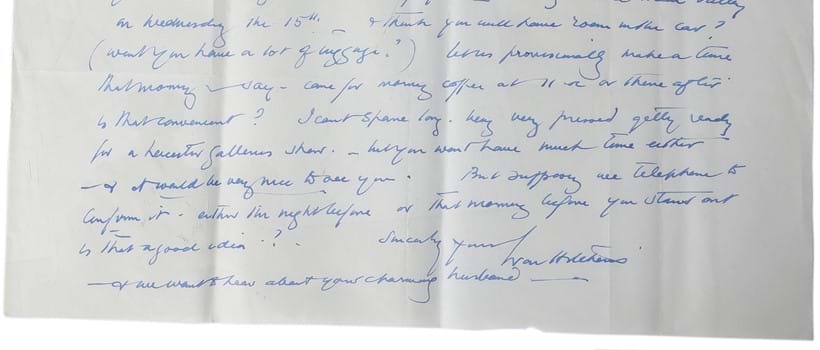 on Wednesday the 15th. & think you will have room in the car?
(won't you have a lot of luggage?) Let us provisionally make a time
that morning – say – come for morning coffee at 11 or thereafter
is that convenient? I can't spare long. being very pressed getting ready
for a Leicester Galleries show. – but you wont have much time either
– & it would be very nice to see you. But suppose we telephone to
confirm it – either the night before or that morning before you start out
is that a good idea??. Sincerely yours Ivon Hitchens
– & we want to hear about your charming husband –